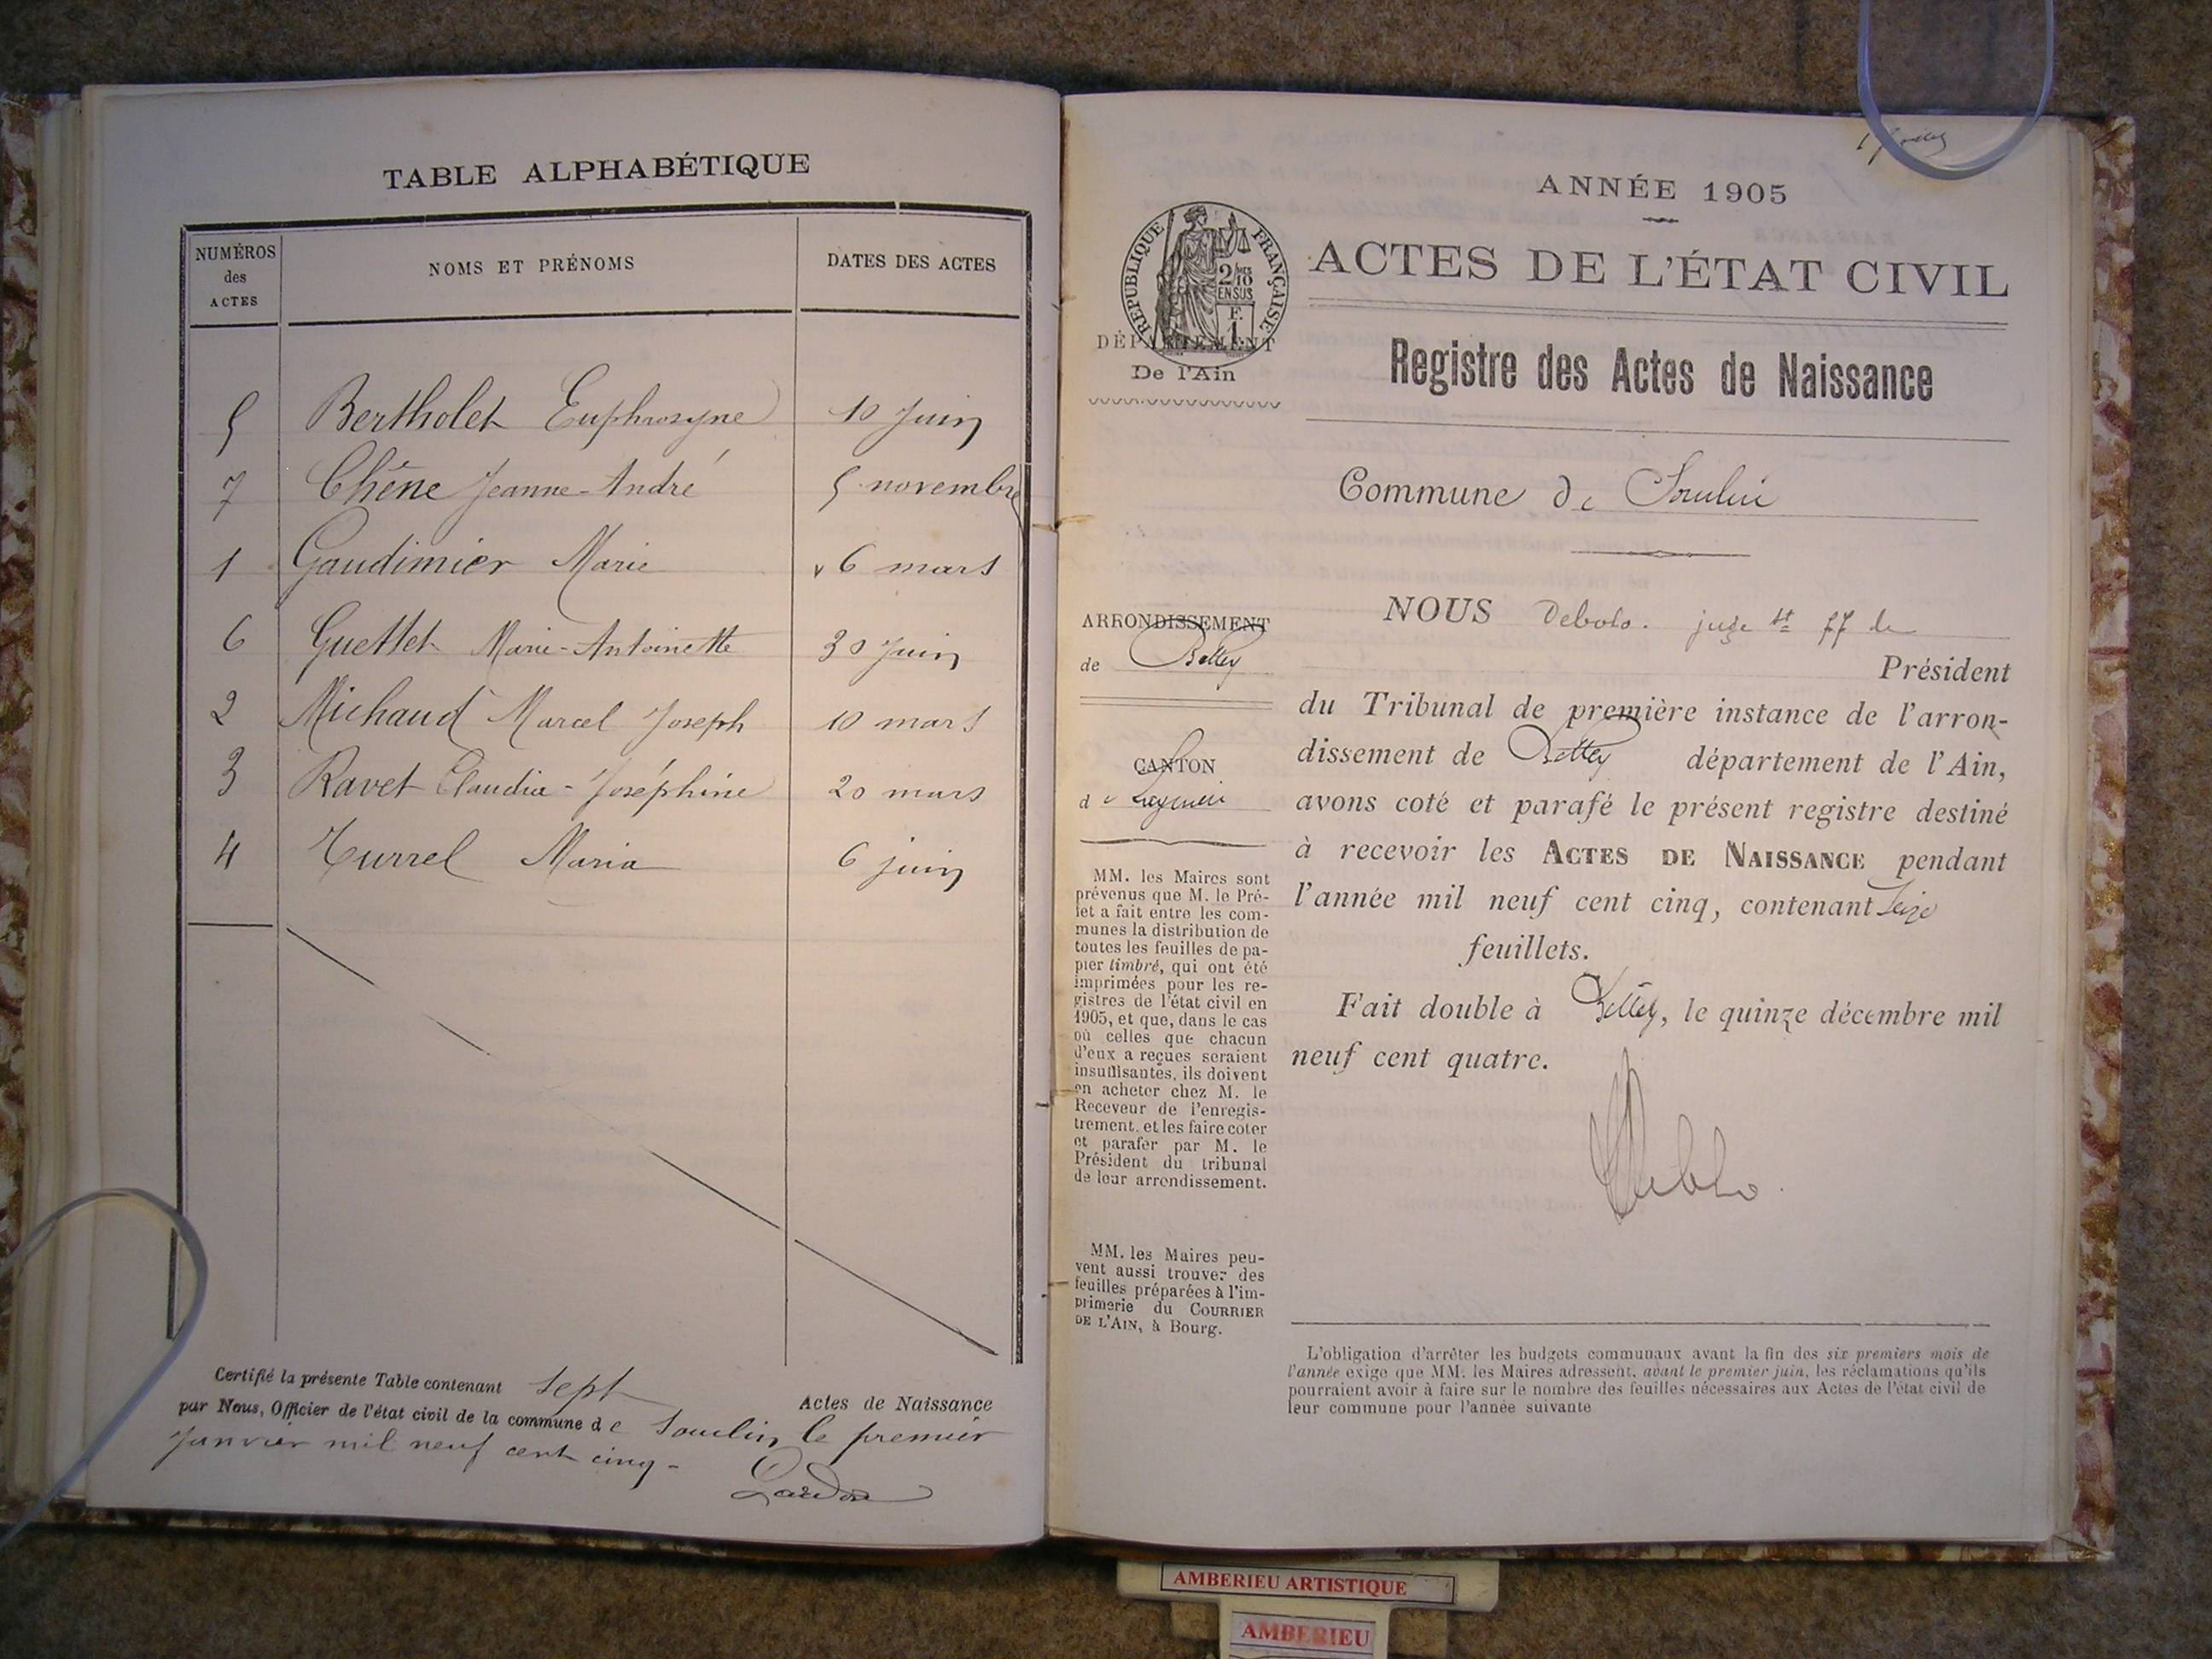 TABLE ALPHABÉTIQUE
NUMÉROS des ACTES
NOMS ET PRÉNOMS
DATES DES ACTES
5 Bertholet Euphrosyne 10 Juin
7 Chêne Jeanne-André 5 novembre
1 Gaudimier Marie 6 mars
6 Guettet Marie-Antoinette 30 Juin
2 Michaud Marcel Joseph 10 mars
3 Ravet Claudia-Joséphine 20 mars
4 Turrel Maria 6 juin
Certifié la présente Table contenant sept Actes de Naissance
par Nous, Officier de l'état civil de la commune de Souclin le premier
Janvier mil neuf cent cinq-
ANNÉE 1905
ACTES DE L'ÉTAT CIVIL
RÉPUBLIQUE FRANÇAISE
2/10
EN SUS
F.
1
DÉPARTEMENT
De l'Ain
Registre des Actes de Naissance
Commune de Souclin
ARRONDISSEMENT
de Belley
CANTON
de Lagnieu
MM. les Maires sont
prévenus que M. le Pré-
fet a fait entre les com-
munes la distribution de
toutes les feuilles de pa-
pier timbré, qui ont été
imprimées pour les re-
gistres de l'état civil en
1905, et que, dans le cas
où celles que chacun
d'eux a reçues seraient
insuffisantes, ils doivent
en acheter chez M. le
Receveur de l'enregis-
trement, et les faire coter
et parafer par M. le
Président du tribunal
de leur arrondissement.
MM. les Maires peu-
vent aussi trouver des
feuilles préparées à l'im-
primerie du COURRIER
DE L'AIN, à Bourg.
NOUS Debolo. juge st ff de
Président
du Tribunal de première instance de l'arron-
dissement de Belley département de l'Ain,
avons coté et parafé le présent registre destiné
à recevoir les ACTES DE NAISSANCE pendant
l'année mil neuf cent cinq, contenant Seize
feuillets.
Fait double à Belley, le quinze décembre mil
neuf cent quatre.
L'obligation d'arrêter les budgets communaux avant la fin des six premiers mois de
l'année exige que MM. les Maires adressent, avant le premier juin, les réclamations qu'ils
pourraient avoir à faire sur le nombre des feuilles nécessaires aux Actes de l'état civil de
leur commune pour l'année suivante
AMBERIEU ARTISTIQUE
AMBERIEU